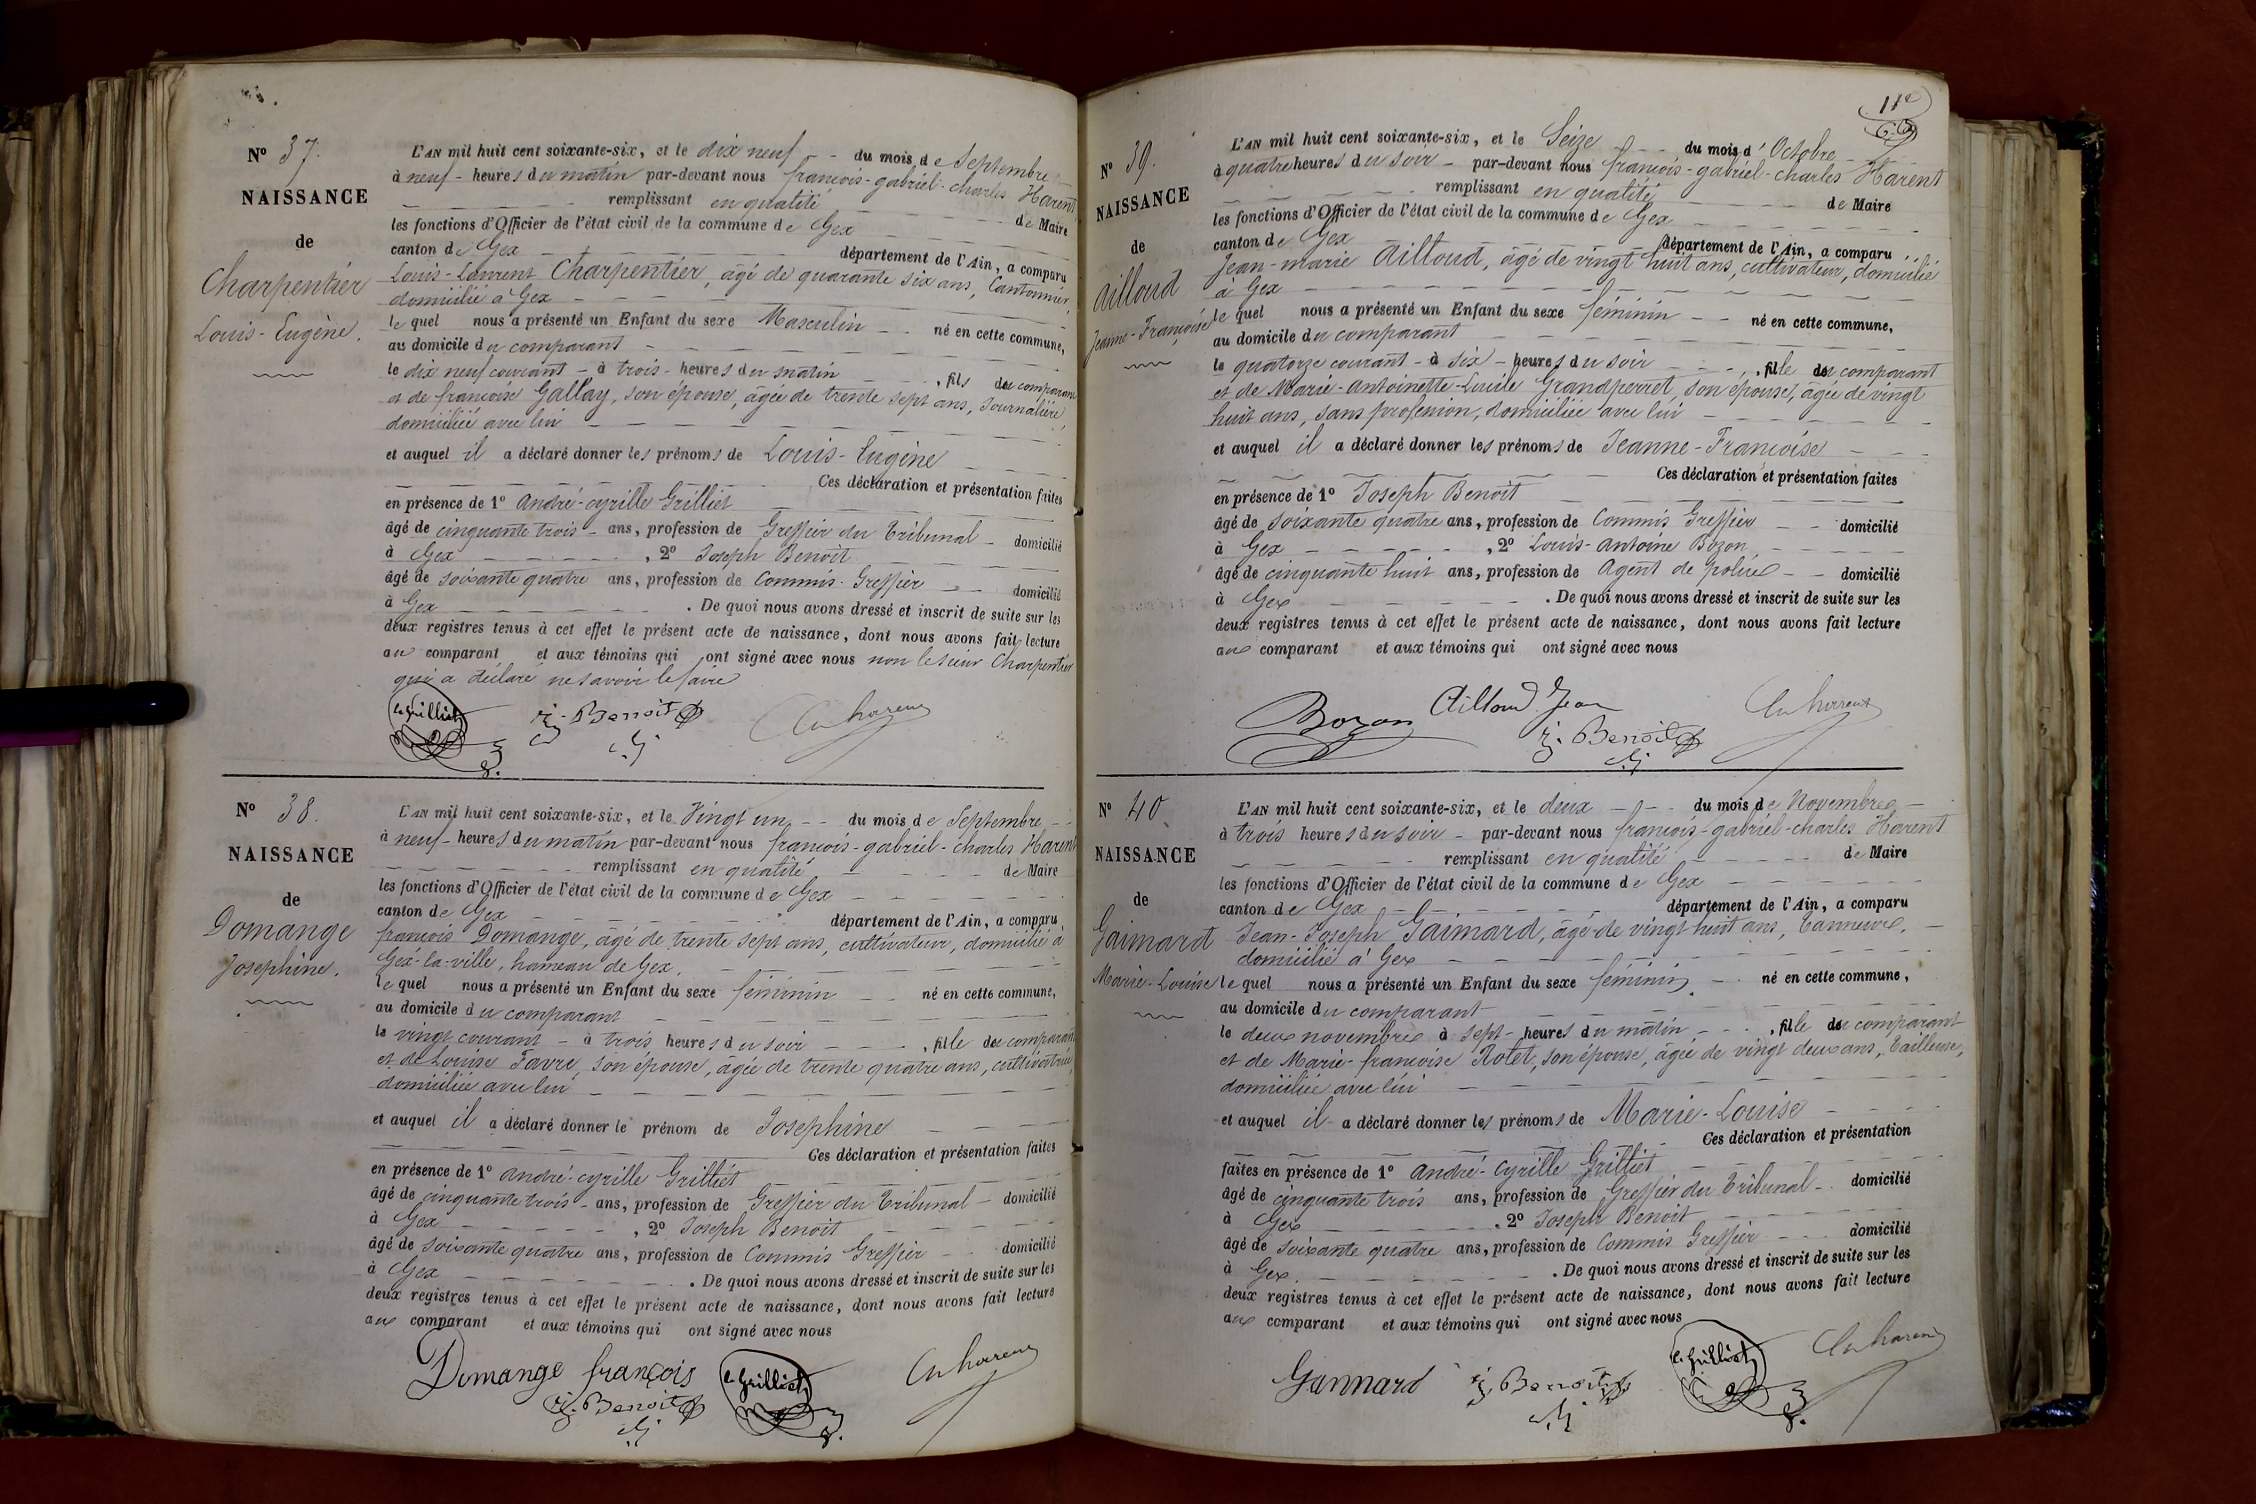 Nº 37.
NAISSANCE
de
Charpentier
Louis-Eugène.
L'AN mil huit cent soixante-six, et le dix neuf du mois de Septembre
à neuf heures du matin par-devant nous françois-gabriel-charles Harent
remplissant en qualité de Maire
les fonctions d'Officier de l'état civil de la commune de Gex
canton de Gex département de l'Ain, a comparu
Louis-Laurent Charpentier, âgé de quarante six ans, Cantonnier,
domicilié à Gex
le quel nous a présenté un Enfant du sexe Masculin né en cette commune,
au domicile du comparant
le dix neuf courant à trois heures du matin, fils du comparant
et de françoise Gallay, son épouse, âgée de trente sept ans, Journalière,
domiciliée avec lui
et auquel il a déclaré donner les prénoms de Louis-Eugène
Ces déclaration et présentation faites
en présence de 1º André-cyrille Grilliet
âgé de cinquante trois ans, profession de Greffier du Tribunal domicilié
à Gex, 2º Joseph Benoit
âgé de soixante quatre ans, profession de Commis-Greffier domicilié
à Gex. De quoi nous avons dressé et inscrit de suite sur les
deux registres tenus à cet effet le présent acte de naissance, dont nous avons fait lecture
au comparant et aux témoins qui ont signé avec nous non le sieur Charpentier
qui a déclaré ne savoir le faire
Grilliet J. Benoit Ch harent
Nº 38.
NAISSANCE
de
Domange
Josephine.
L'AN mil huit cent soixante-six, et le Vingt un du mois de Septembre
à neuf heures du matin par-devant nous françois-gabriel-charles Harent
remplissant en qualité de Maire
les fonctions d'Officier de l'état civil de la commune de Gex
canton de Gex département de l'Ain, a comparu
françois Domange, âgé de trente sept ans, cultivateur, domicilié à
Gex-la-ville, hameau de Gex.
le quel nous a présenté un Enfant du sexe féminin né en cette commune,
au domicile du comparant
le vingt courant à trois heures du soir, fille du comparant
et de Louise Favre, son épouse, âgée de trente quatre ans, cultivatrice,
domiciliée avec lui
et auquel il a déclaré donner le prénom de Josephine
Ces déclaration et présentation faites
en présence de 1º André-cyrille Grilliet
âgé de cinquante trois ans, profession de Greffier du Tribunal domicilié
à Gex, 2º Joseph Benoit
âgé de soixante quatre ans, profession de Commis Greffier domicilié
à Gex. De quoi nous avons dressé et inscrit de suite sur les
deux registres tenus à cet effet le présent acte de naissance, dont nous avons fait lecture
aux comparant et aux témoins qui ont signé avec nous
Domange françois Grilliet Ch harent
J. Benoit
11e
Nº 39.
NAISSANCE
de
Ailloud
Jeanne-Françoise
L'AN mil huit cent soixante-six, et le Seize du mois d'Octobre
à quatre heures du soir par-devant nous françois-gabriel-charles Harent
remplissant en qualité de Maire
les fonctions d'Officier de l'état civil de la commune de Gex
canton de Gex département de l'Ain, a comparu
Jean-marie Ailloud, âgé de vingt huit ans, cultivateur, domicilié
à Gex
le quel nous a présenté un Enfant du sexe féminin né en cette commune,
au domicile du comparant
le quatorze courant à six heures du soir, fille du comparant
et de Marie-Antoinette-Lucile Grandperret, son épouse, âgée de vingt
huit ans, sans profession, domiciliée avec lui
et auquel il a déclaré donner les prénoms de Jeanne-Françoise
Ces déclaration et présentation faites
en présence de 1º Joseph Benoit
âgé de soixante quatre ans, profession de Commis Greffier domicilié
à Gex, 2º Louis-Antoine Bozon
âgé de cinquante huit ans, profession de Agent de police domicilié
à Gex. De quoi nous avons dressé et inscrit de suite sur les
deux registres tenus à cet effet le présent acte de naissance, dont nous avons fait lecture
aux comparant et aux témoins qui ont signé avec nous
Bozon Ailloud Jean Ch harent
J. Benoit
Nº 40
NAISSANCE
de
Gaimard
Marie-Louise
L'AN mil huit cent soixante-six, et le deux du mois de Novembre
à trois heures du soir par-devant nous françois-gabriel-charles Harent
remplissant en qualité de Maire
les fonctions d'Officier de l'état civil de la commune de Gex
canton de Gex département de l'Ain, a comparu
Jean-Joseph Gaimard, âgé de vingt-huit ans, Tanneur,
domicilié à Gex
le quel nous a présenté un Enfant du sexe féminin né en cette commune,
au domicile du comparant
le deux novembre à sept heures du matin, fille du comparant
et de Marie-françoise Rolet, son épouse, âgée de vingt deux ans, Tailleuse,
domiciliée avec lui
et auquel il a déclaré donner les prénoms de Marie-Louise
Ces déclaration et présentation
faites en présence de 1º André-Cyrille Grilliet
âgé de cinquante trois ans, profession de Greffier du Tribunal domicilié
à Gex, 2º Joseph Benoit
âgé de soixante quatre ans, profession de Commis Greffier domicilié
à Gex. De quoi nous avons dressé et inscrit de suite sur les
deux registres tenus à cet effet le présent acte de naissance, dont nous avons fait lecture
aux comparant et aux témoins qui ont signé avec nous
Gaimard J. Benoit Grilliet Ch harent